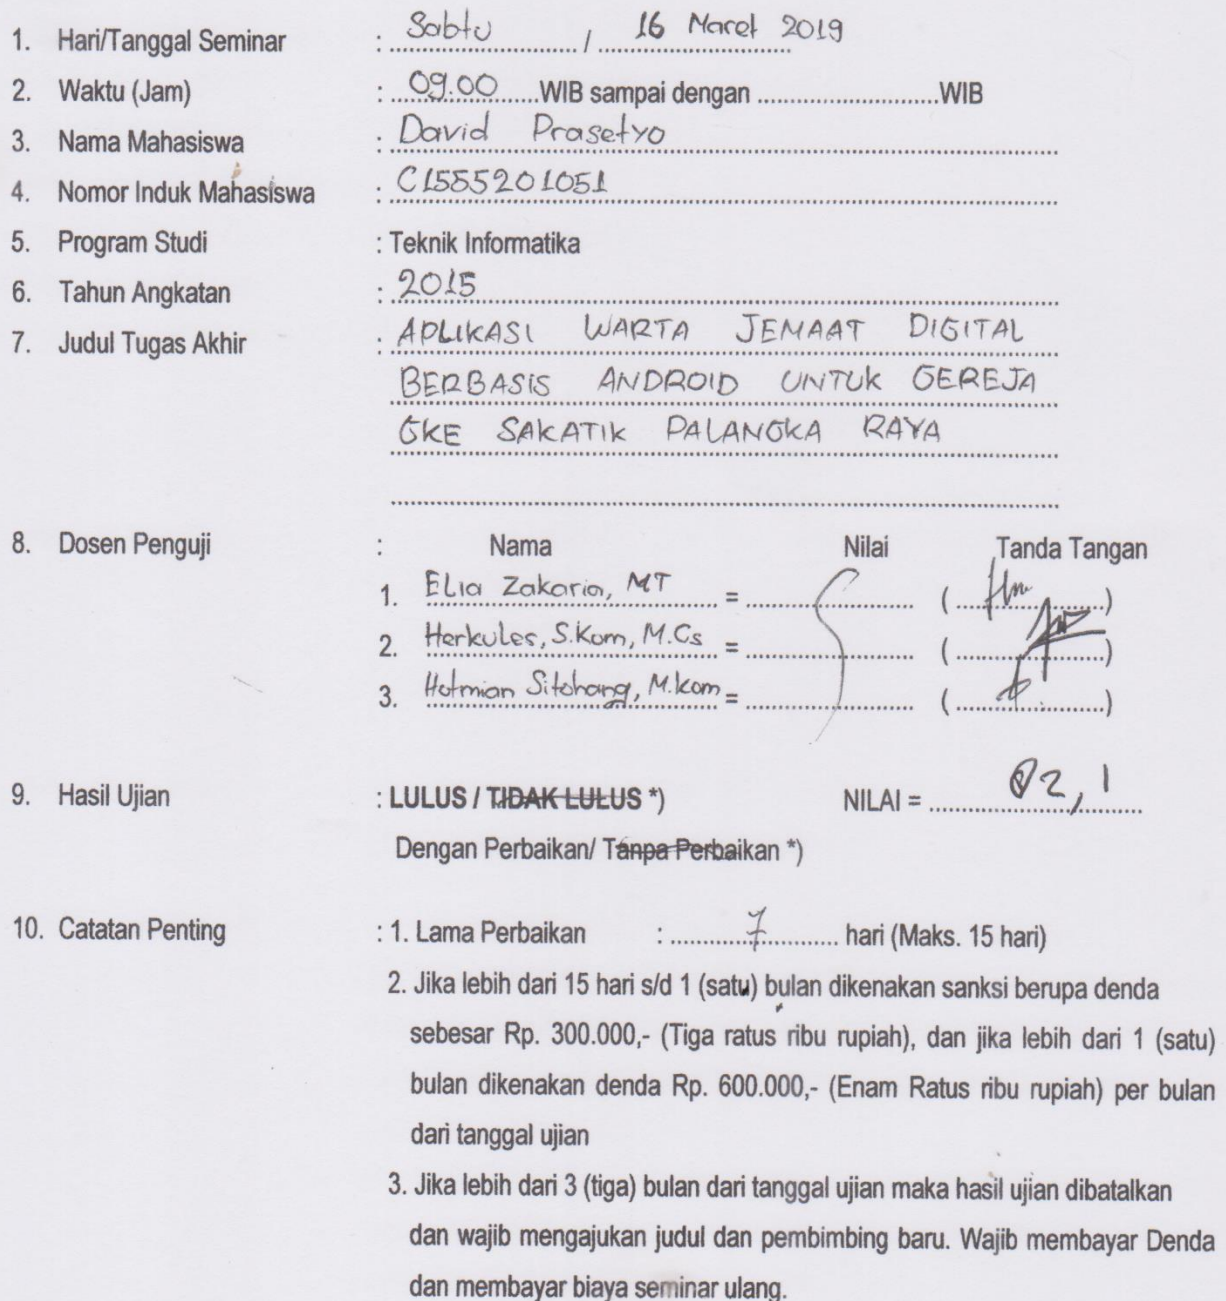 1. Hari/Tanggal Seminar : Sabtu / 16 Maret 2019
2. Waktu (Jam) : 09.00 WIB sampai dengan ............................WIB
3. Nama Mahasiswa : David Prasetyo
4. Nomor Induk Mahasiswa : C1555201051
5. Program Studi : Teknik Informatika
6. Tahun Angkatan : 2015
7. Judul Tugas Akhir : APLIKASI WARTA JEMAAT DIGITAL
BERBASIS ANDROID UNTUK GEREJA
GKE SAKATIK PALANGKA RAYA
8. Dosen Penguji : Nama Nilai Tanda Tangan
1. Elia Zakaria, MT = .......................... ( )
2. Herkules, S.Kom, M.Cs = .......................... ( )
3. Hotmian Sitohang, M.kom = .......................... ( )
9. Hasil Ujian : LULUS / TIDAK LULUS *) NILAI = 82,1
Dengan Perbaikan/ Tanpa Perbaikan *)
10. Catatan Penting : 1. Lama Perbaikan : 7 hari (Maks. 15 hari)
2. Jika lebih dari 15 hari s/d 1 (satu) bulan dikenakan sanksi berupa denda
sebesar Rp. 300.000,- (Tiga ratus ribu rupiah), dan jika lebih dari 1 (satu)
bulan dikenakan denda Rp. 600.000,- (Enam Ratus ribu rupiah) per bulan
dari tanggal ujian
3. Jika lebih dari 3 (tiga) bulan dari tanggal ujian maka hasil ujian dibatalkan
dan wajib mengajukan judul dan pembimbing baru. Wajib membayar Denda
dan membayar biaya seminar ulang.